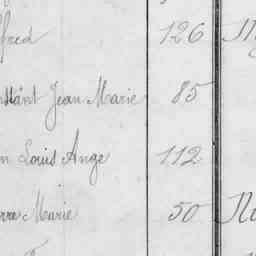 fred 126
nstant Jean Marie 85
n Louis Ange 112
rre Marie 50